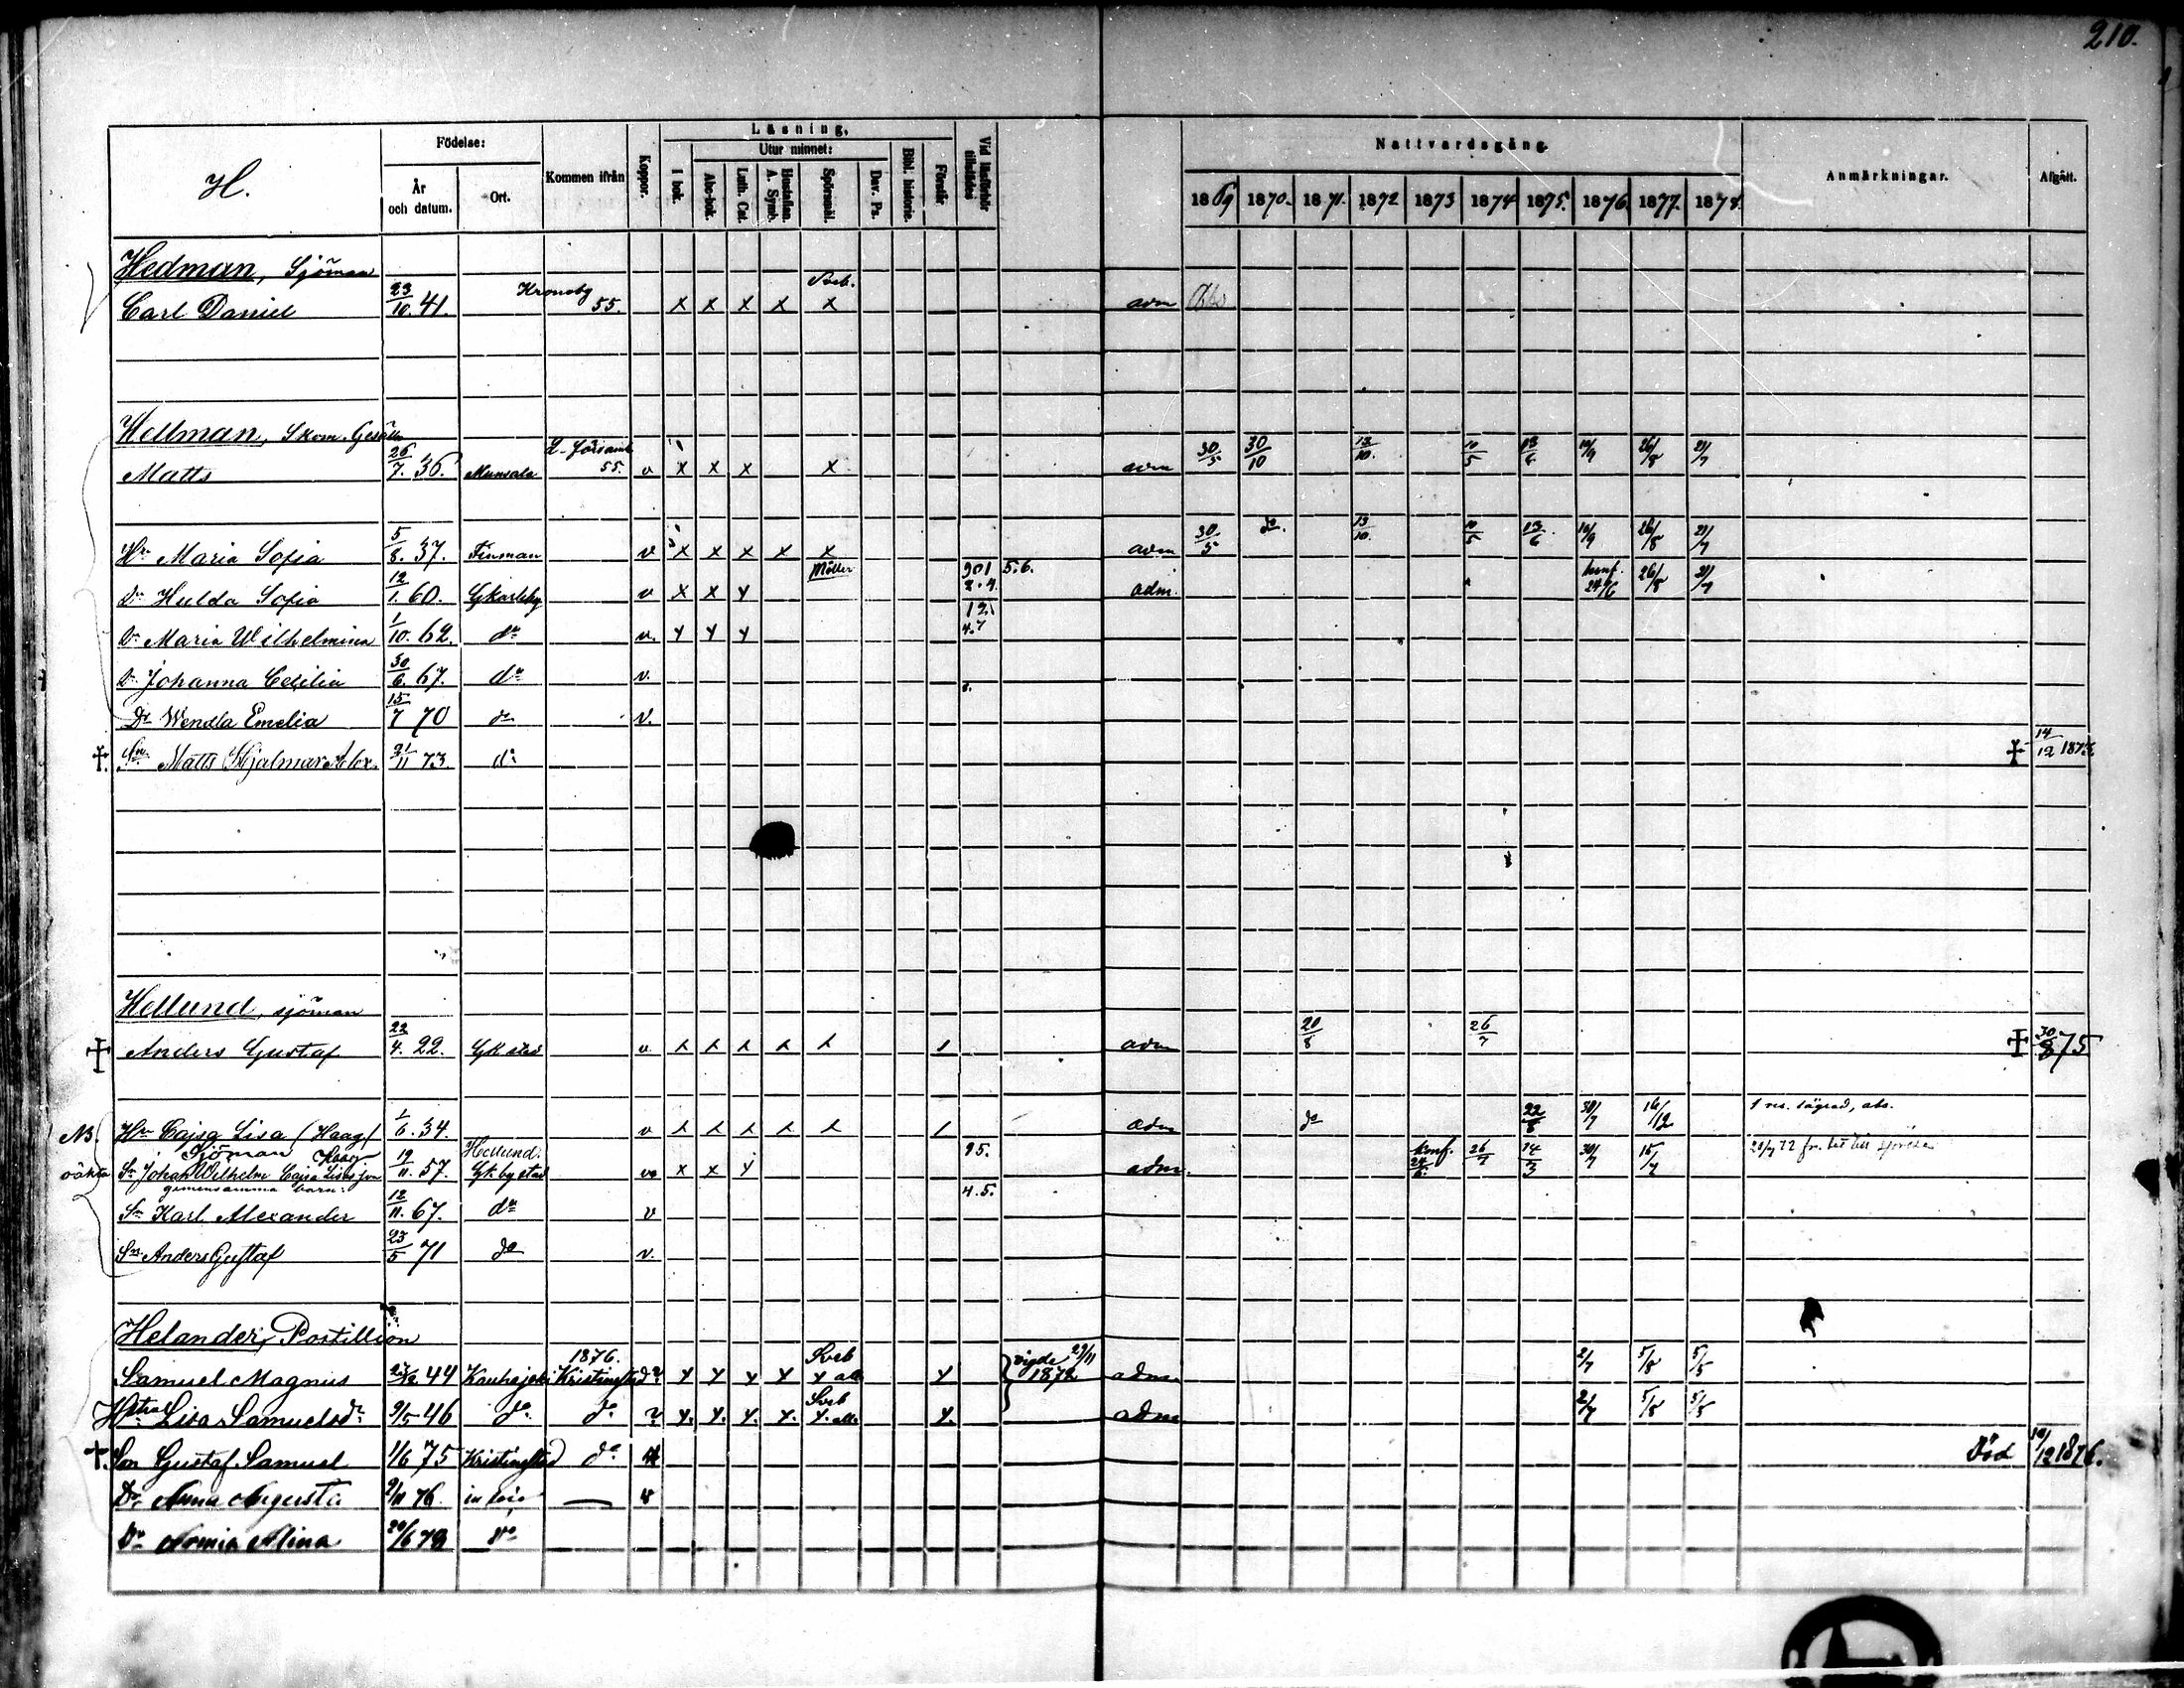 210.
H.
Födelse:
År och datum.
Ort.
Kommen ifrån
Koppor.
Läsning.
I bok.
Utur minnet:
Abc-bok.
Luth. Cat.
Hustaflan. A. Symb.
Spörsmål.
Dav. Ps.
Bibl. historie.
Förstår
Vid läsförhör tillstädes
Nattvardsgång.
1869 1870. 1871. 1872 1873 1874 1875. 1876. 1877. 1878.
Anmärkningar.
Afgått.
Hedman, Sjöman
Carl Daniel 23/10. 41. Kronoby 55. x x x x Sveb. x adm
Hellman, Skom. Gesäll
Matts 26/7. 36. Munsala L-församl 55. v x x x x adm 30/5 30/10 13/10. 10/5 13/6 10/9 26/8 21/7
Hu Maria Sofia 5/8. 37. Finman v x x x x x adm 30/5 do. 13/10. 10/5 13/6 10/9 26/8 21/7
Dr Hulda Sofia 12/1. 60. Gkarleby v x x y Möller 901 5.6. 2.4. adm. konf. 24/6 26/8 21/7
Dr Maria Wilhelmina 1/10. 62. do v. y y y 12 4.7
Dr Johanna Cecilia 30/6. 67. do v.
Dr Wendla Emelia 15/7 70 do v.
† Sn Matts Hjalmar Alex. 21/11 73. do † 14/12 1873
Hellund, sjöman
† Anders Gustaf 22/4. 22. Gk stad v adm 20/8 26/7 † 30/8 75
NB. Hu Cajsa Lisa (Haag) 1/6. 34. v adm do 22/8 30/7 16/12
Sjöman Haag Hellund.
oäkta Sn Johan Wilhelm Cajsa Lisas son 19/11. 57. Gk by stad x x y 95. adm. konf. 24/6. 26/7 14/3 30/7 15/7
gemensamma barn: 4.5.
Sn Karl Alexander 12/11. 67. do v
Sn Anders Gustaf 23/5 71 do v.
Helander, Postillion
Samuel Magnus 44 Kauhajoki 1876. Kristinestad ? y y y y Sveb y all y vigde 29/11 1872 adm 2/7 5/8 5/5
Hustru Lisa Samuelsdr 9/5 46 do. do. ? y. y. y. y. Sveb y. alla y. adm 2/7 5/8 5/5
†. Son Gustaf Samuel 1/6 75 Kristinestad do. Död 10/12 1876.
Dr. Anna Augusta 9/11 76. in loco — v
Dr Naemia Alina 20/6 78 do